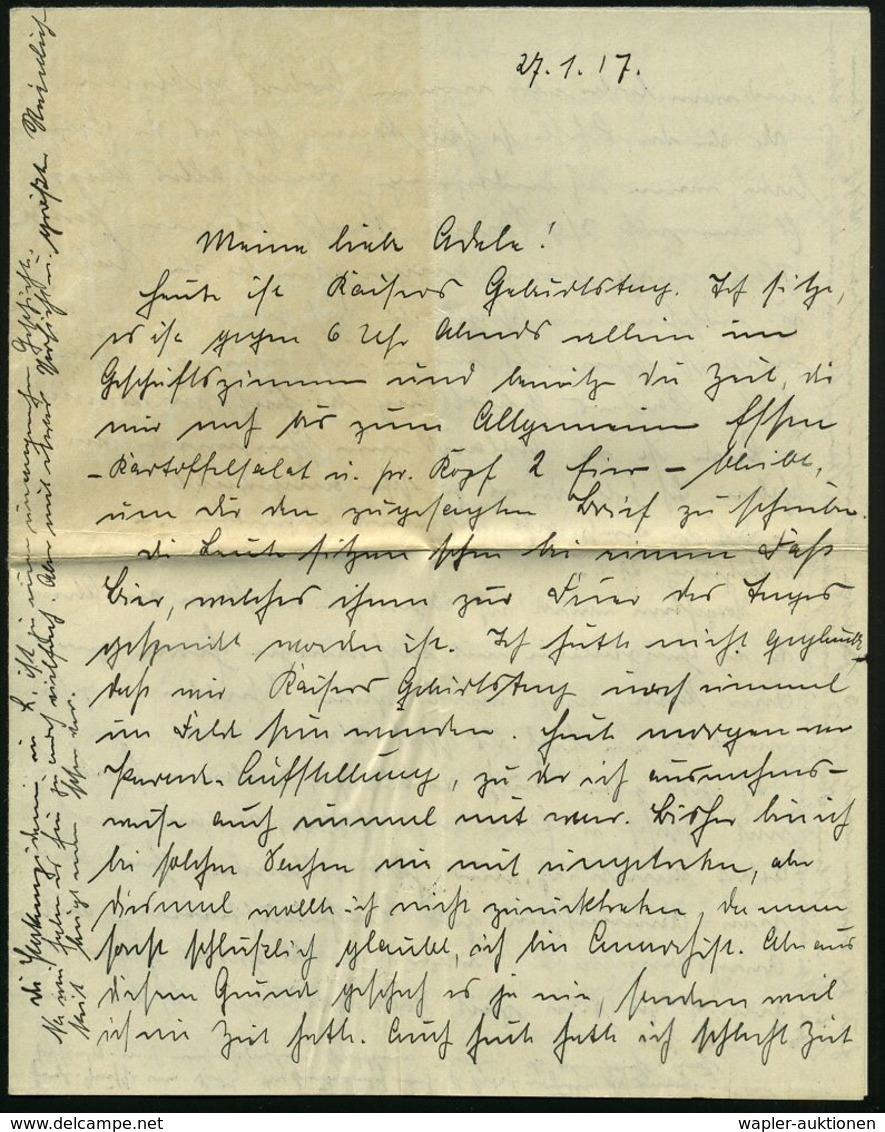 27.1.17.
Meine liebe Adele!
Heute ist Kaisers Geburtstag. Ich sitze,
es ist gegen 6 Uhr Abends allein im
Geschäftszimmer und benütze die Zeit, die
mir noch bis zum Allgemeinen Essen
- Kartoffelsalat u. pr. Kopf 2 Eier - bleibt,
um Dir den zugesagten Brief zu schreiben.
Die Leute sitzen schon bei einem Faß
Bier, welches ihnen zur Feier des Tages
gespendet worden ist. Ich hätte nicht geglaubt
daß wir Kaisers Geburtstag noch einmal
im Feld sein werden. Heute morgen war
Parade-Aufstellung, zu der ich ausnahms-
weise auch einmal mit war. Bisher bin ich
bei solchen Sachen nie mit eingetreten, aber
diesmal wollte ich nicht zurücktreten, da man
sonst schließlich glaubt, ich bin Anarchist. Aber aus
diesem Grund geschah es ja nie, sondern weil
ich nie Zeit hatte. Auch heute hatte ich schlecht Zeit
in L. ist ja eine Geschichte.
Na wir haben es hier ja noch vielfach. Aber mit etwas Vorsicht u.
seit man sich vor.